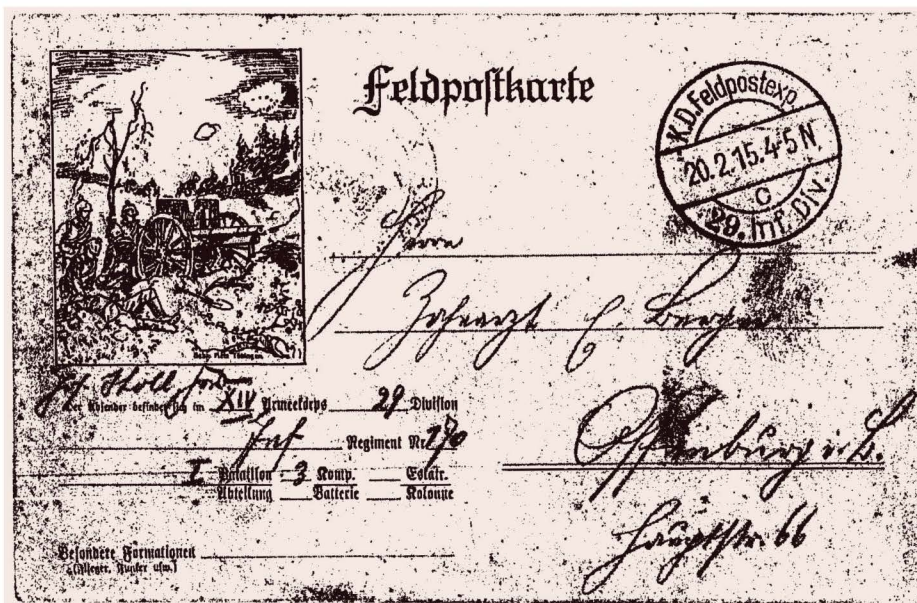 Feldpostkarte
K.D.Feldpostexp.
20.2.15.4-5N.
C
29. Inf. Div.
Herrn
Zahnarzt C. Berger
Offenburg i. B.
Hauptstr. 66
Stoll
Der Absender befindet sich im XIV Armeekorps 29 Division
Inf Regiment Nr 170
I Bataillon 3 Komp. Eskadr.
Abteilung Batterie Kolonne
Besondere Formationen
(Flieger, Funker usw.)